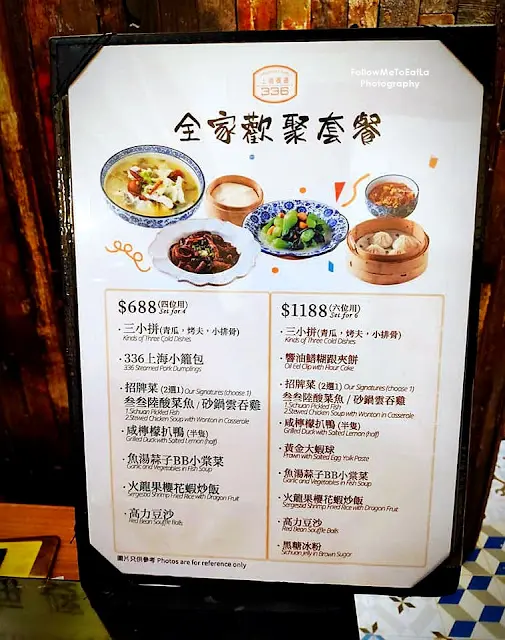 FollowMeToEatLa
Photography
336
全家歡聚套餐
$688 (四位用)
Set for 4
· 三小拼(青瓜，烤夫，小排骨)
Kinds of Three Cold Dishes
· 336上海小籠包
336 Steamed Pork Dumplings
· 招牌菜 (2選1) Our Signatures (choose 1)
叁叁陸酸菜魚 / 砂鍋雲吞雞
1.Sichuan Pickled Fish
2.Stewed Chicken Soup with Wonton in Casserole
· 咸檸檬扒鴨 (半隻)
Grilled Duck with Salted Lemon (half)
· 魚湯蒜子BB小棠菜
Garlic and Vegetables in Fish Soup
· 火龍果櫻花蝦炒飯
Sergestid Shrimp Fried Rice with Dragon Fruit
· 高力豆沙
Red Bean Souffle Balls
$1188 (六位用)
Set for 6
· 三小拼(青瓜，烤夫，小排骨)
Kinds of Three Cold Dishes
· 響油鱔糊跟夾餅
Oil Eel Clip with Flour Cake
· 招牌菜 (2選1) Our Signatures (choose 1)
叁叁陸酸菜魚 / 砂鍋雲吞雞
1.Sichuan Pickled Fish
2.Stewed Chicken Soup with Wonton in Casserole
· 咸檸檬扒鴨 (半隻)
Grilled Duck with Salted Lemon (half)
· 黃金大蝦球
Prawn with Salted Egg Yolk Paste
· 魚湯蒜子BB小棠菜
Garlic and Vegetables in Fish Soup
· 火龍果櫻花蝦炒飯
Sergestid Shrimp Fried Rice with Dragon Fruit
· 高力豆沙
Red Bean Souffle Balls
· 黑糖冰粉
Sichuan Jelly in Brown Sugar
圖片只供參考 Photos are for reference only